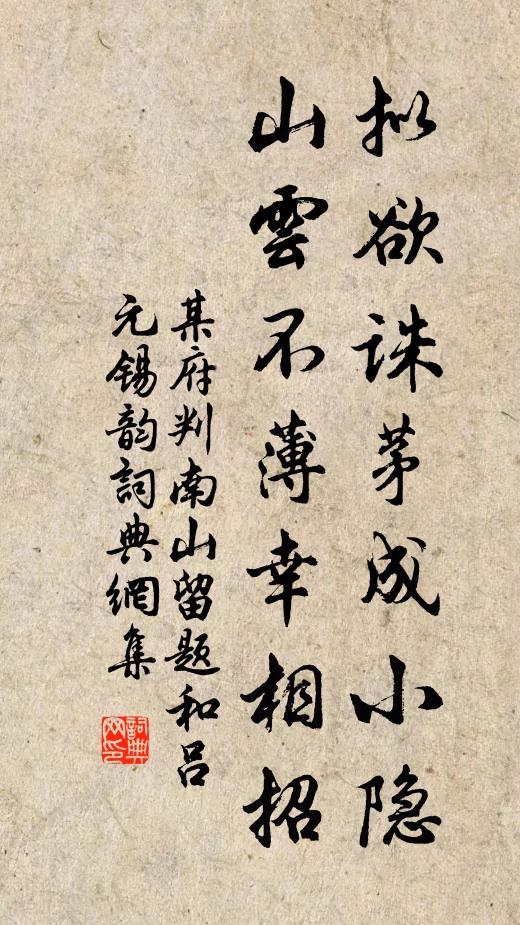 拟欲诛茅成小隐
山雲不薄幸相招
某府判南山留题和吕
元锡韵詞典網集
詞典
网印